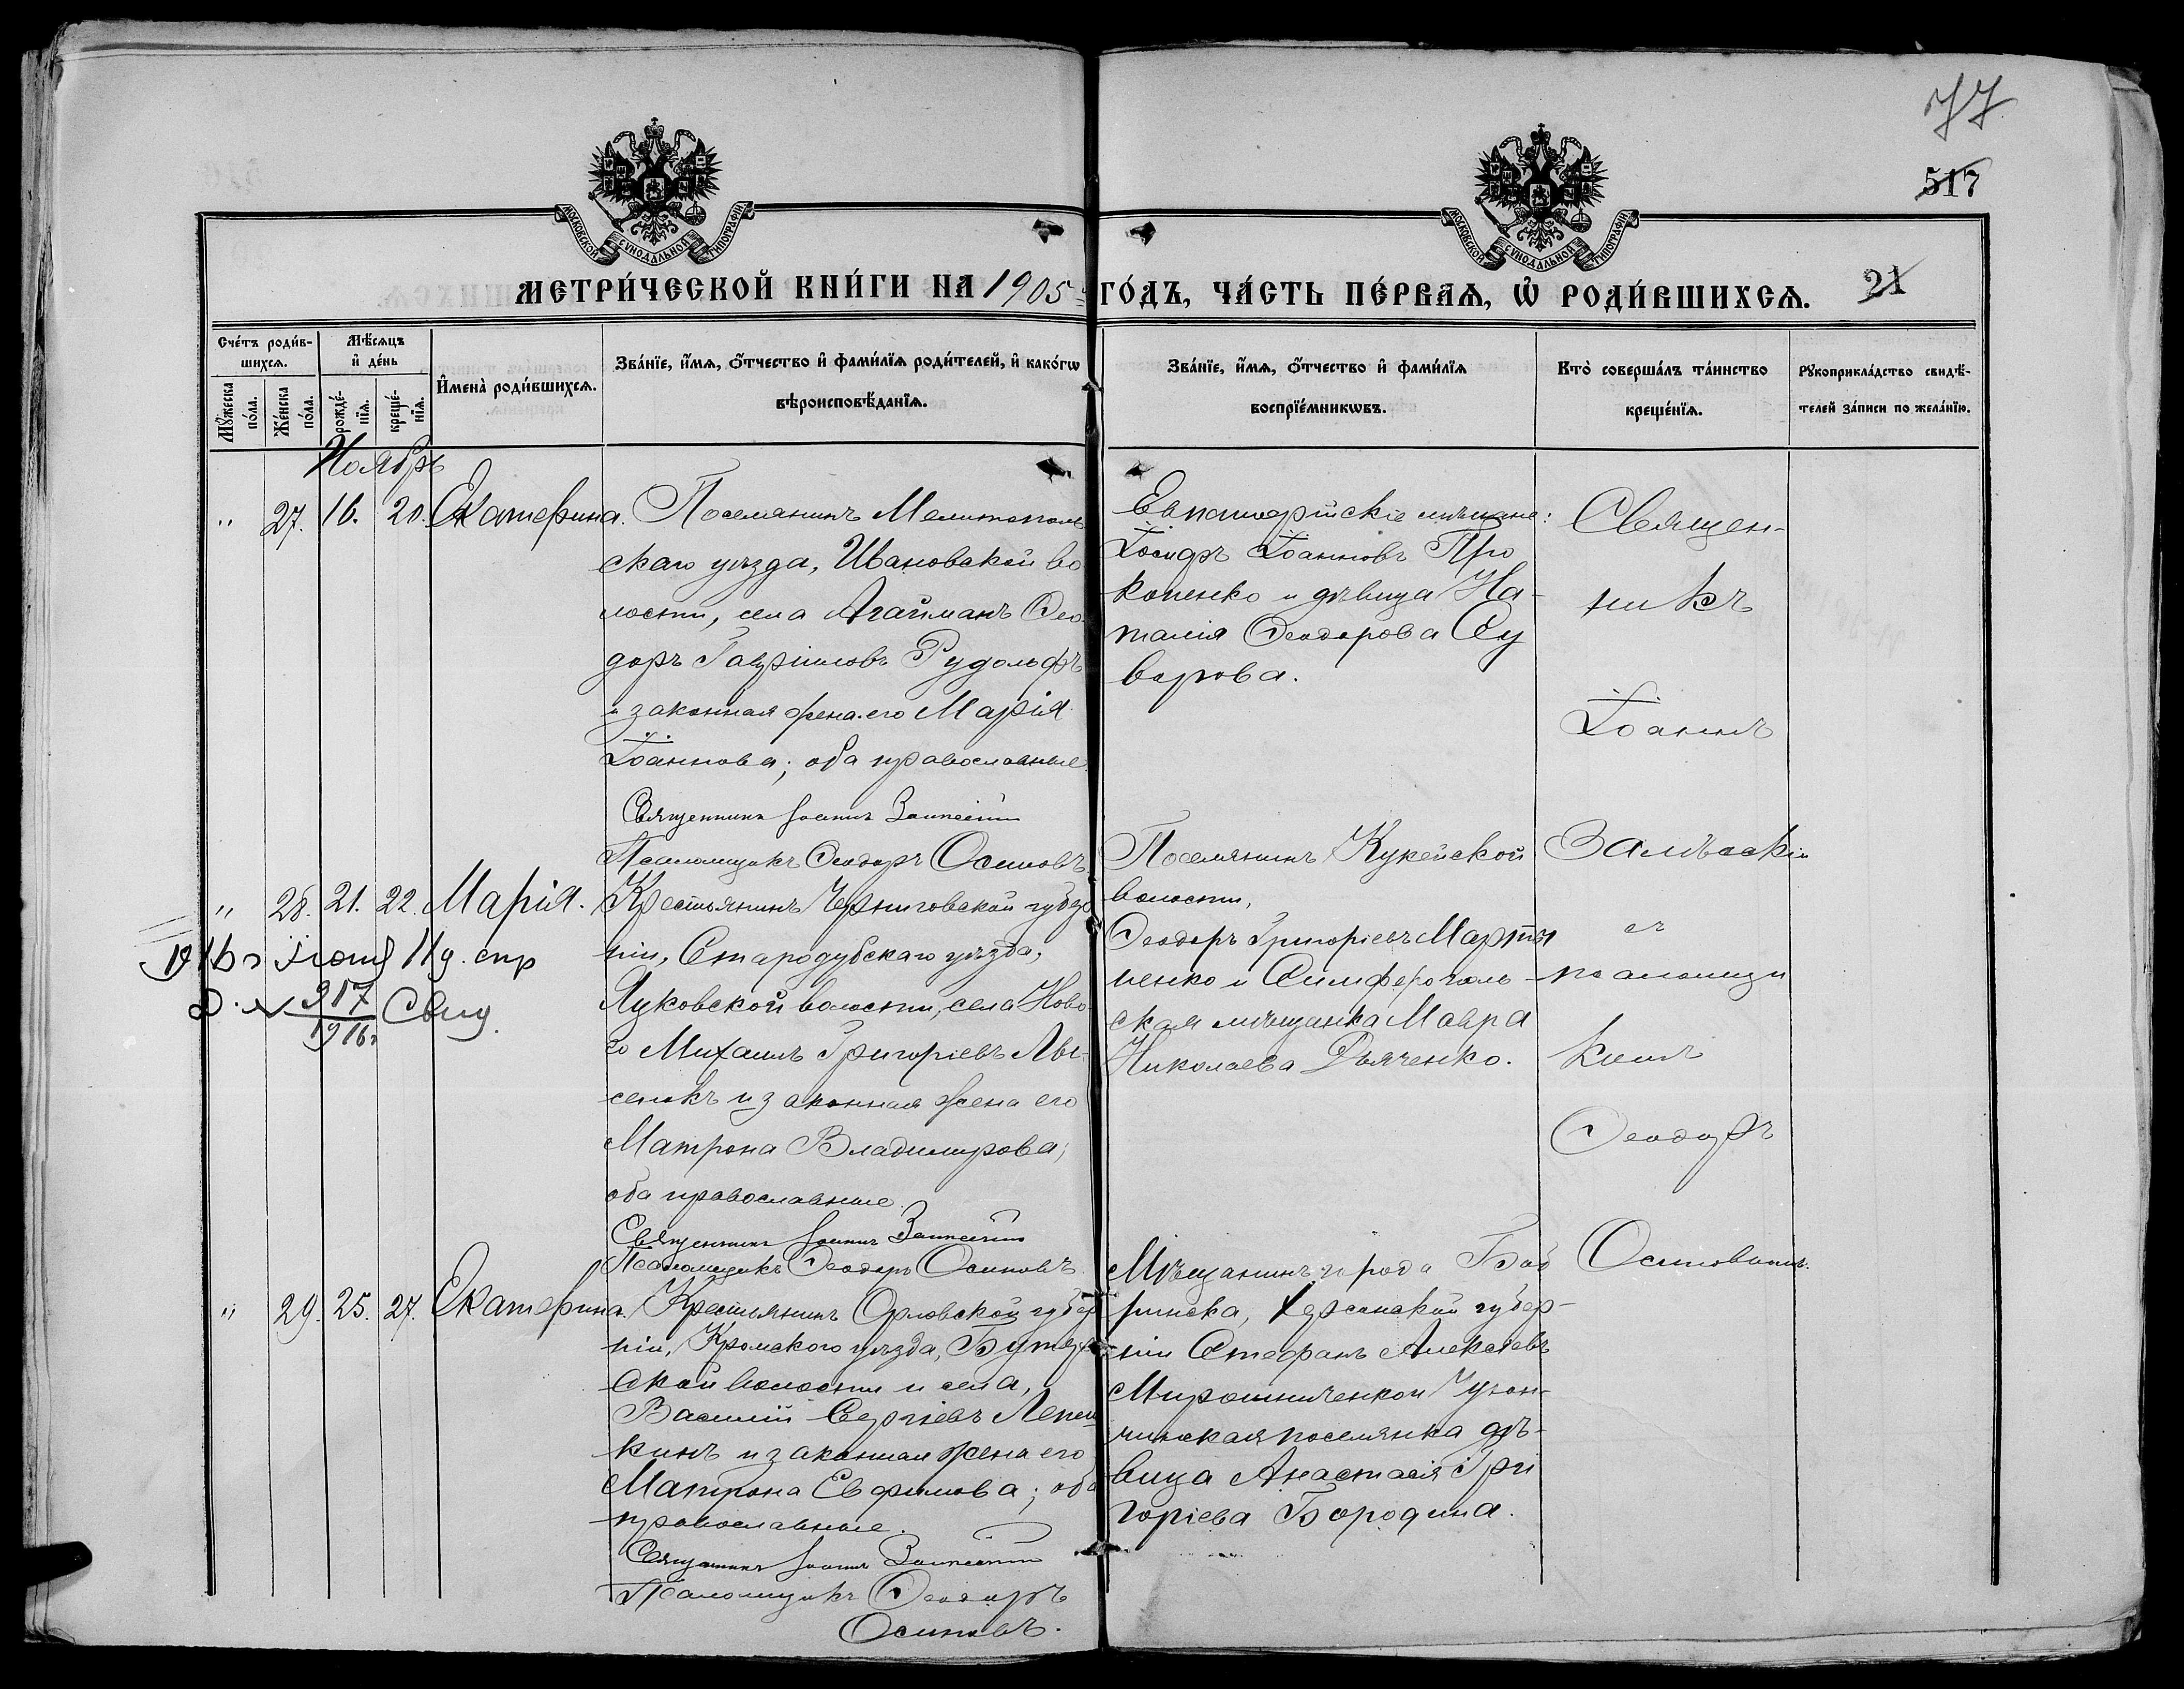 77
517
МОСКОВСКОЙ СѴНОДАЛЬНОЙ ТИПОГРАФІИ
МОСКОВСКОЙ СѴНОДАЛЬНОЙ ТИПОГРАФІИ
МЕТРИ́ЧЕСКОЙ КНИ́ГИ НА 1905 ГО́ДЪ, ЧА́СТЬ ПЕ́РВАѦ, Ѡ҆ РОДИ́ВШИХСѦ.
21
Сче́тъ роди́в-
шихсѧ.
Мꙋ́жеска по́ла.
Же́нска по́ла.
Мѣ́сѧцъ
и҆ де́нь
рожде́-
нїѧ.
креще́-
нїѧ.
И҆мена̀ роди́вшихсѧ.
Зва́нїе, и҆́мѧ, ѻ҆́тчество и҆ фами́лїѧ роди́телей, и҆ како́гѡ
вѣроисповѣ́данїѧ.
Зва́нїе, и҆́мѧ, ѻ҆́тчество и҆ фами́лїѧ
воспрїе́мникѡвъ.
Кто̀ соверша́лъ та́инство
креще́нїѧ.
Рꙋкоприкла́дство свидѣ́-
телей за́писи по жела́нїю.
Ноябрь
" 27. 16. 20. Екатерина.
Поселянинъ Мелитополь
скаго уѣзда, Ивановской во
лости, села Агайманъ Ѳео
доръ Гавріиловъ Рудольфъ
и законная жена его Марія
Іоаннова; оба православные.
Священникъ Іоаннъ
Псаломщикъ Ѳеодоръ Осиповъ
Евпаторійскіе мѣщане:
Іосифъ Іоанновъ Про
копенко и дѣвица На-
талія Ѳеодорова Су
ворова.
Священ-
никъ
Іоаннъ
съ
псаломщи
комъ
Ѳеодоръ
Осиповымъ.
" 28. 21. 22. Марія.
1916 г Іюня 11 д. спр
917
1916 г
Крестьянинъ Черниговской губер
ніи, Стародубскаго уѣзда,
Луковской волости, села Ново
го Михаилъ Григоріевъ Лы-
сенокъ и законная жена его
Матрона Владимирова;
оба православные.
Священникъ Іоаннъ
Псаломщикъ Ѳеодоръ Осиповъ.
Поселянинъ Кукейской
волости,
Ѳеодоръ Григоріевъ Марты
ненко и Симферополь-
ская мѣщанка Мавра
Николаева Дьяченко.
" 29. 25. 27. Екатерина.
Крестьянинъ Орловской губер
ніи, Кромского уѣзда,
ской волости и села,
Василій Сергіевъ Лепеш
кинъ и законная жена его
Матрона Евфимова; оба
православные.
Священникъ Іоаннъ
Псаломщикъ Ѳеодоръ
Осиповъ.
Мѣщанинъ города Боб
ринска, Херсонской губер-
ніи Стефанъ Алексѣевъ
Мирошниченко и
чинская поселянка дѣ-
вица Анастасія Гри
горіева Бородина.